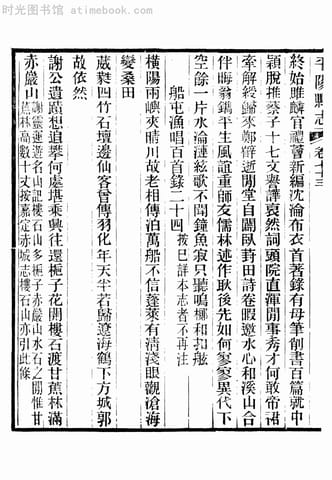 时光图书馆www.dbxsd.com
平陽縣志 卷十三
終始雎麟官禮薈新編沈淪布衣首著錄有母筆削書百篇就中
穎脫推蔡子十七文譽譁袞然詞頭院直渾閒事秀才何敢帝君
牽解綬歸來鄭辭逝閒堂自闢葑田詩卷暇邀水心和溪山合
伴晦翁鐫平生風誼重師友儒林述作耿後先如何寥寥異代下
空餘一片水淪漣絃歌不聞鐘魚寂只聽嗚榔和扣舷
船屯漁唱百首錄二十四 按已詳本志者不再注
橫陽兩嶼夾晴川故老相傳泊萬船不信蓬萊有清淺眼觀滄海
變桑田
葳蕤四竹石壇邊仙客曾傳羽化年天半若歸遼海鶴下方城郭
故依然
謝公遺躅想追攀何處堪乘興往還梔子花開樓石渡甘蔗林滿
赤巖山 謝靈運遊名山記樓石山多梔子赤巖山水石之間惟甘蔗林高數十丈按嘉定赤城志樓石山亦引此條